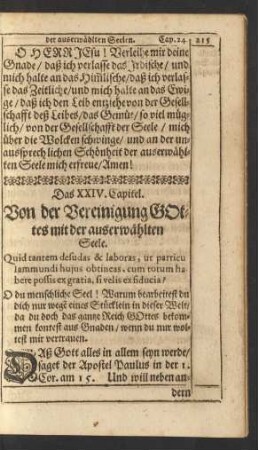 der auserwählten Seelen. Cap. 24 215
O HERR JEsu! Verleihe mir deine
Gnade/ daß ich verlasse das Irdische/ und
mich halte an das Himlische/ daß ich verlas-
se das Zeitliche/ und mich halte an das Ewi-
ge/ daß ich den Leib entziehe von der Gesell-
schafft deß Leibes/ das Gemüt/ so viel müg-
lich/ von der Gesellschafft der Seele/ mich
über die Wolcken schwinge/ und an der un-
aussprechlichen Schönheit der auserwähl-
ten Seele mich erfreue/ Amen!
Das XXIV. Capitel.
Von der Vereinigung GOt-
tes mit der auserwählten
Seele.
Quid tantem desudas & laboras, ut parricu
lam mundi hujus obtineas, cum totum ha
bere possis ex gratia, si velis ex fiducia/
O du menschliche Seel! Warum bearbeitest du
dich nur wegē eines Stücklein in dieser Welt/
da du doch das gantze Reich GOttes bekom-
men kontest aus Gnaden/ wenn du nur wol-
test mir vertrauen.
DAß Gott alles in allem seyn werde/
saget der Apostel Paulus in der 1.
Cor. am 15. Und will neben an-
dern